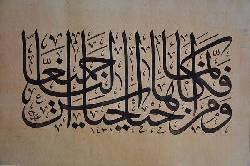 ومن احياها فكانما احيا الناس جميعا